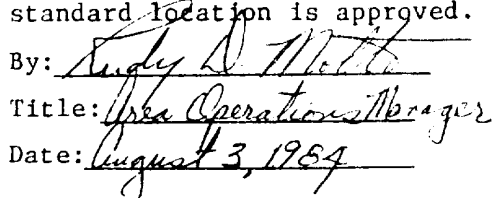 standard location is approved.
By: Rudy D. Motto
Title: Area Operations Manager
Date: August 3, 1984